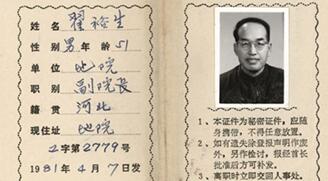 姓名 翟裕生
性别 男 年龄 51
单位 地院
职别 副院长
籍贯 河北
现住址 地院
2字第2779号
1981年4月7日发
1、本证件为秘密证件，应随
身携带，不得任意放置。
2、如有遗失除登报声明作废
外，另作检讨，报经首长
批准后方可补发。
3、离职时立即交回人事处。